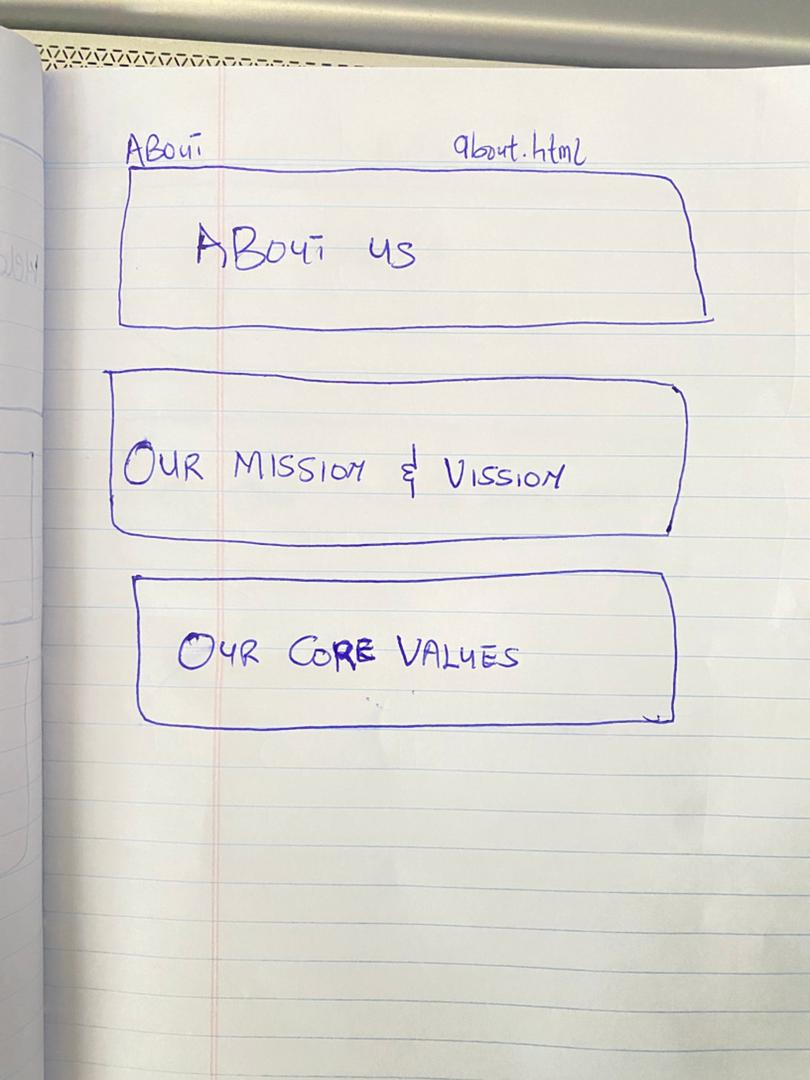 ABOUT about.html
ABOUT US
OUR MISSION & VISSION
OUR CORE VALUES